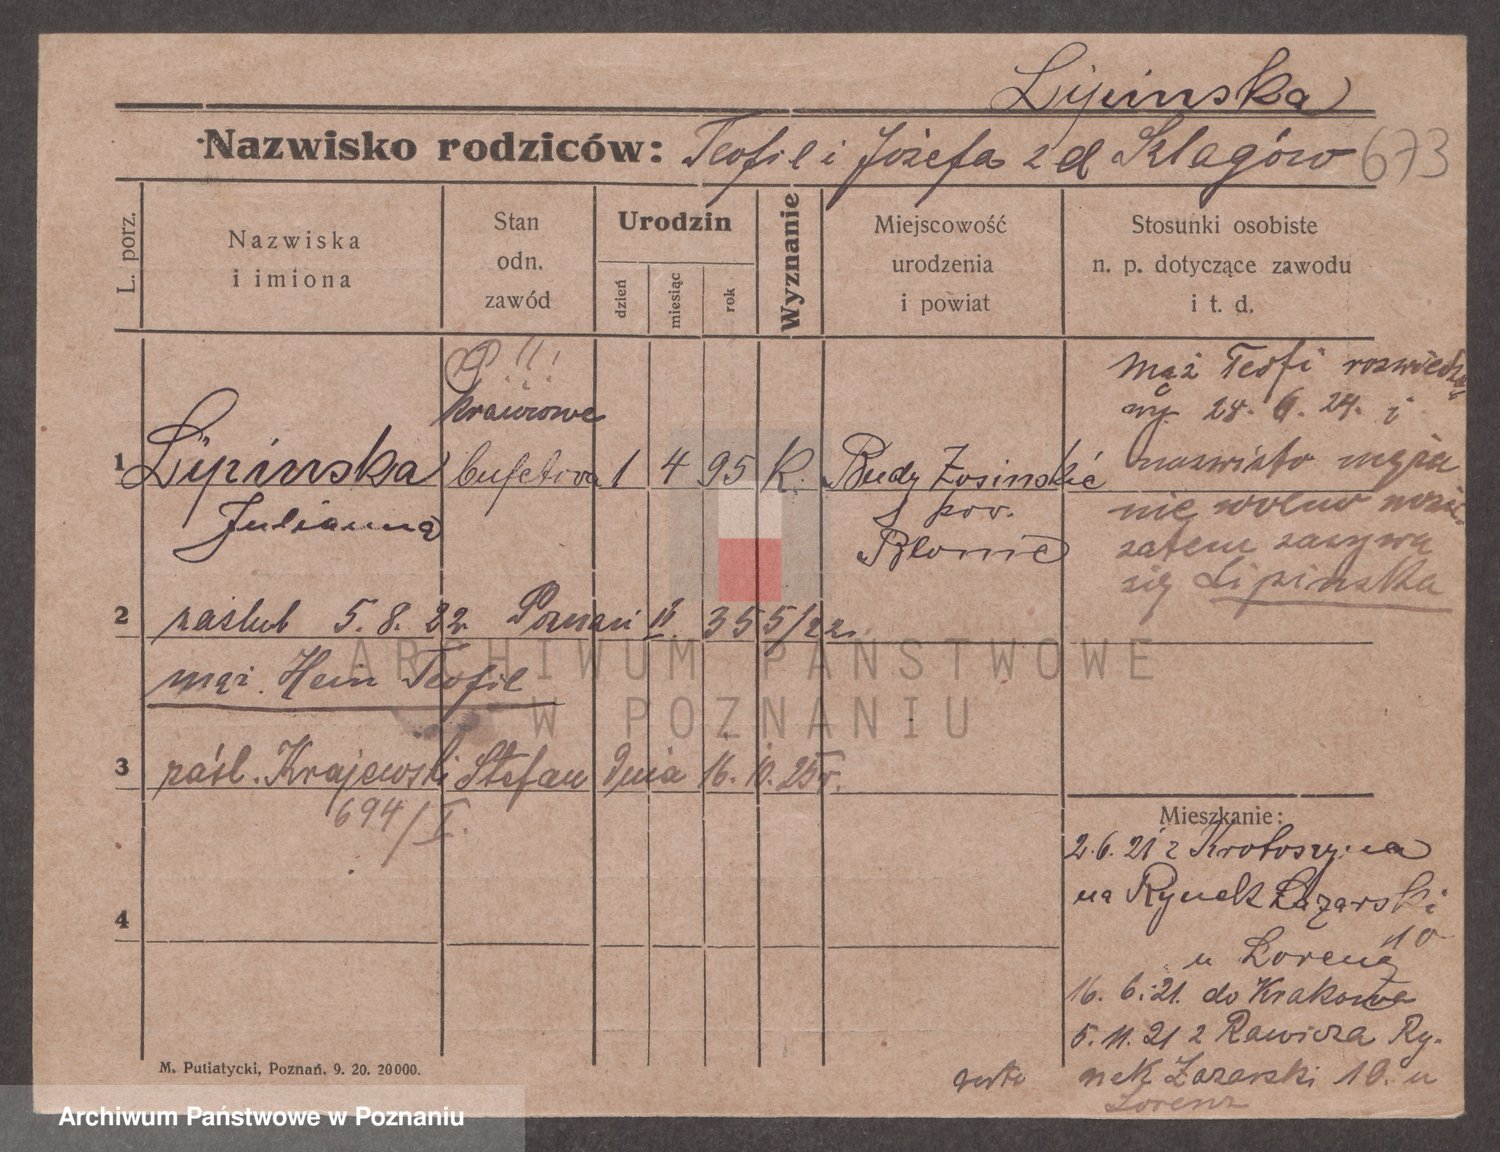 Lipinska
Nazwisko rodziców: Teofil i Józefa z d Szlagów 673
L. porz.
Nazwiska
i imiona
Stan
odn.
zawód
Urodzin
dzień
miesiąc
rok
Wyznanie
Miejscowość
urodzenia
i powiat
Stosunki osobiste
n. p. dotyczące zawodu
i t. d.
1 Lipinska
Julianna
krawcowa
bufetowa
1 4 95 K.
Budy Zosinskie
pow.
Błonie
mąż Teofi rozwiedz
28. 6. 24. i
nazwisko męża
nie wolno nosić
zatem zazywa
się Lipinska
2 zaślub 5. 8. 22 Poznań II. 355/22.
mąż. Hein Teofil
3 zaśl. Krajewski Stefan dnia 16. 10. 25r.
694/I.
4
Mieszkanie:
2.6.21 z Krotoszyna
na Rynek Łazarski
10
u Lorenz
16. 6. 21. do Krakowa
5. 11. 21 z Rawicza Ry-
nek Łazarski 10. u
Lorenz
verte
M. Putiatycki, Poznań. 9. 20. 20000.
ARCHIWUM PAŃSTWOWE
W POZNANIU
Archiwum Państwowe w Poznaniu